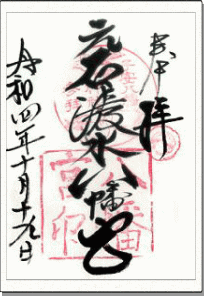 奉拝
元石清水八幡宮
令和四年十月十九日